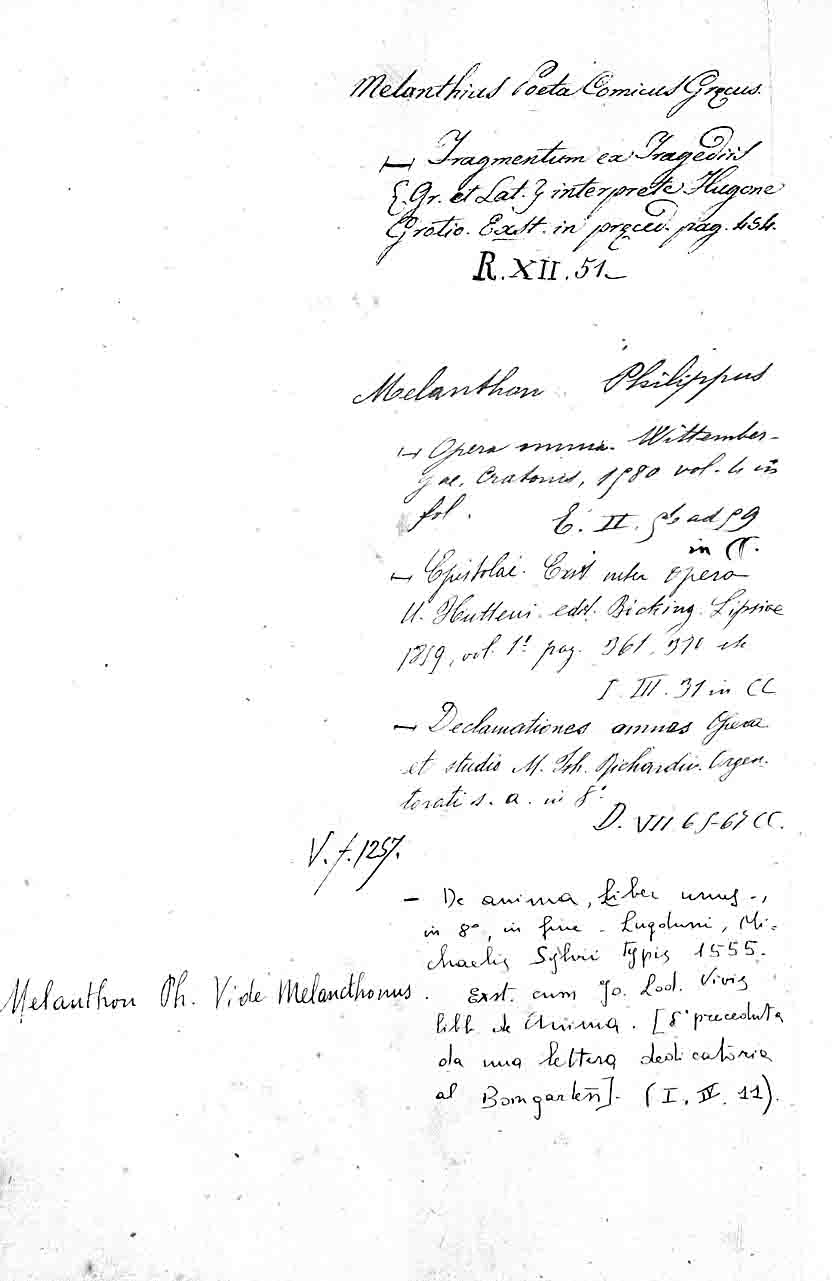 Melanthius Poeta Comicus Gręcus.
Fragmentum ex Tragediis
{Gr. et Lat.} interprete Hugone
Grotio. Exst. in pręced. pag. 454.
R. XII. 51
Melanthon Philippus
Opera omnia. Wittember-
gae, Cratonis, 1580 vol. 4 in
fol. E. II. 56 ad 59
in CC.
Epistolae. Exst. inter Opera
U. Hutteni. edit. Bicking. Lipsiae
1859, vol. 1º pag. 361, 370 etc
I. III. 31 in CC
Declamationes omnes Opera
et studio M. Joh. Richardii. Argen-
torati s. a. in 8º
D. VII 65-67 CC.
V. f. 1257.
– De anima, liber unus.,
in 8º, in fine. Lugduni, Mi-
chaelis Sylvii typis 1555.
Melanthon Ph. Vide Melancthonus.
Exst. cum Jo. Lod. Vivis
libb. de Anima. [È preceduta
da una lettera dedicatoria
al Bomgarten]. (I. IV. 11).